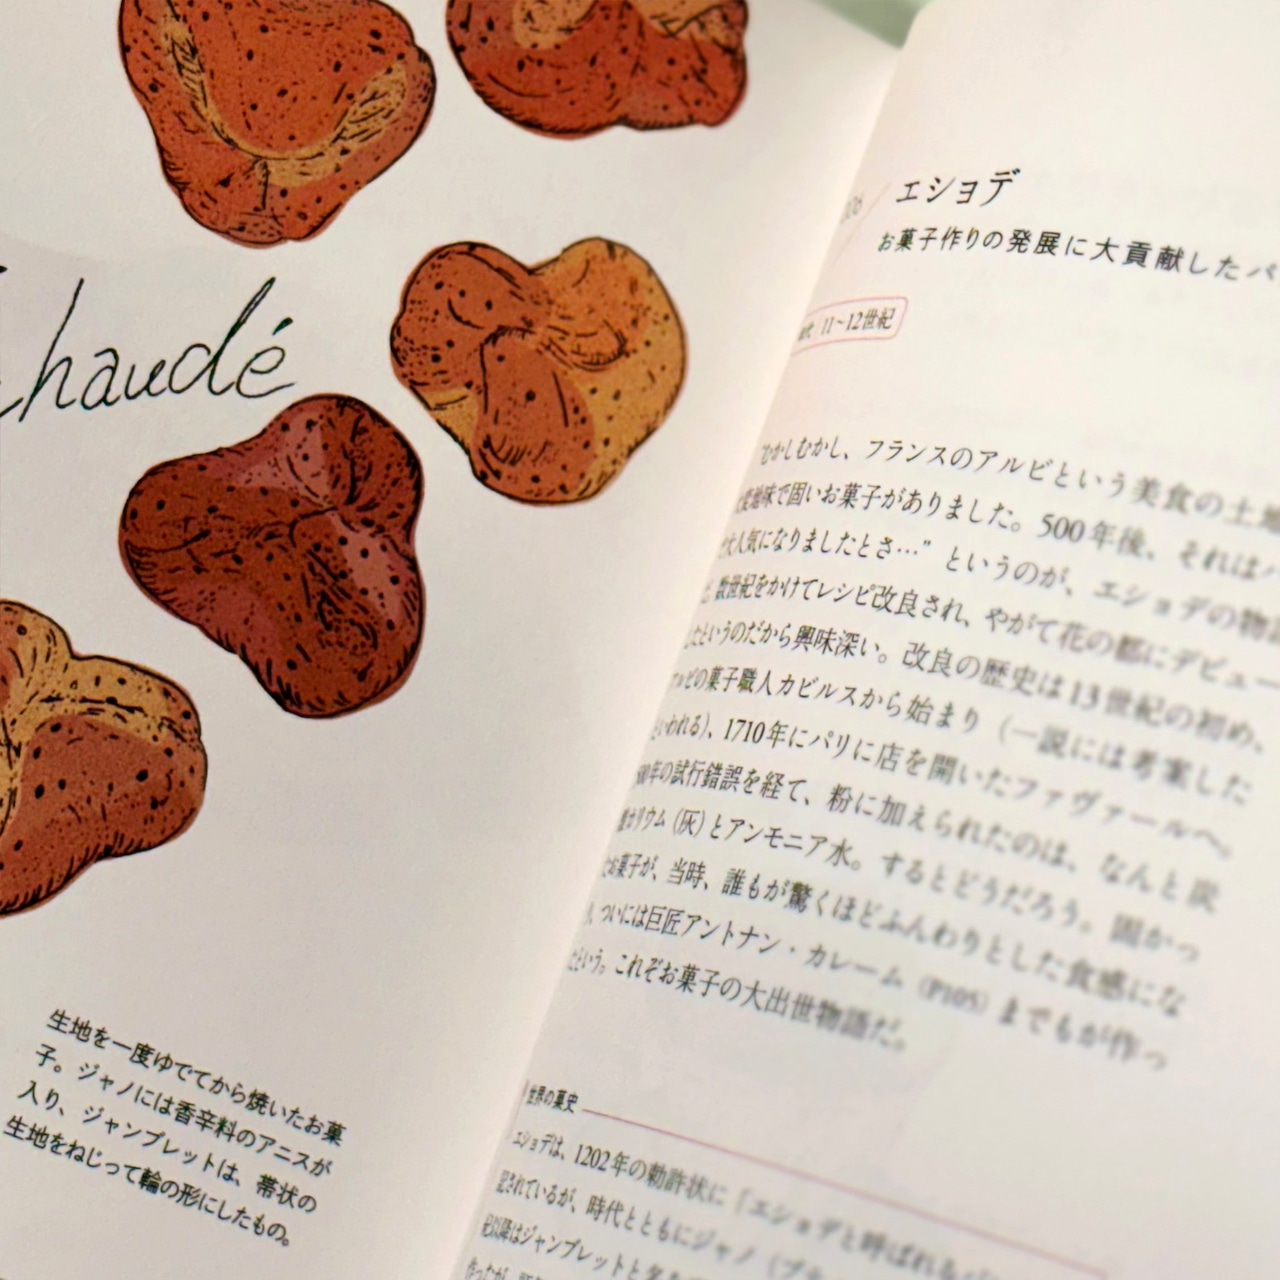 haudé
生地を一度ゆでてから焼いたお菓
子。ジャノには香辛料のアニスが
入り、ジャンブレットは、帯状の
生地をねじって輪の形にしたもの。
エショデ
お菓子作りの発展に大貢献したパ
11~12世紀
むかしむかし、フランスのアルビという美食の土地
地味で固いお菓子がありました。500年後、それはパ
大人気になりましたとさ…” というのが、エショデの物語
数世紀をかけてレシピ改良され、やがて花の都にデビュー
したというのだから興味深い。改良の歴史は13世紀の初め、
アルビの菓子職人カビルスから始まり（一説には考案した
といわれる）、1710年にパリに店を開いたファヴァールへ。
年の試行錯誤を経て、粉に加えられたのは、なんと炭
カリウム（灰）とアンモニア水。するとどうだろう。固かっ
たお菓子が、当時、誰もが驚くほどふんわりとした食感にな
り、ついには巨匠アントナン・カレーム（P105）までもが作っ
たという。これぞお菓子の大出世物語だ。
世界の菓史
エショデは、1202年の勅許状に「エショデと呼ばれるパン
記されているが、時代とともにジャノ（プラ
紀以降はジャンブレットと名